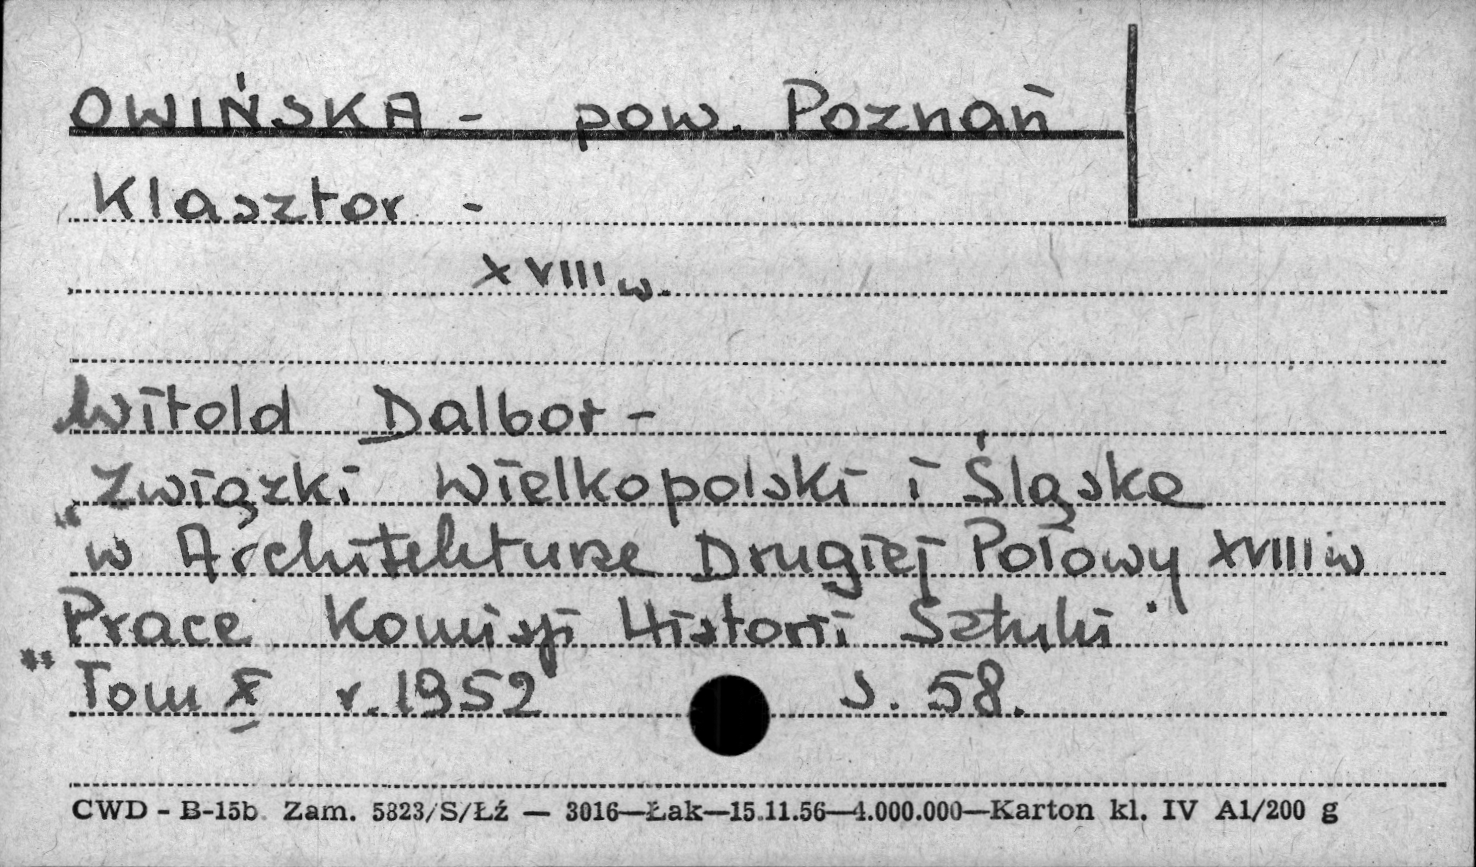 OWIŃSKA - pow. Poznań
Klasztor -
XVIII w.
Witold Dalbor -
Związki Wielkopolski i Śląska
"w Architekturze Drugiej Połowy XVIII w
Prace Komisji Historii Sztuki"
"Tom X r. 1952 s. 58.
CWD - B-15b Zam. 5823/S/Łź — 3016—Łak—15.11.56—4.000.000—Karton kl. IV A1/200 g